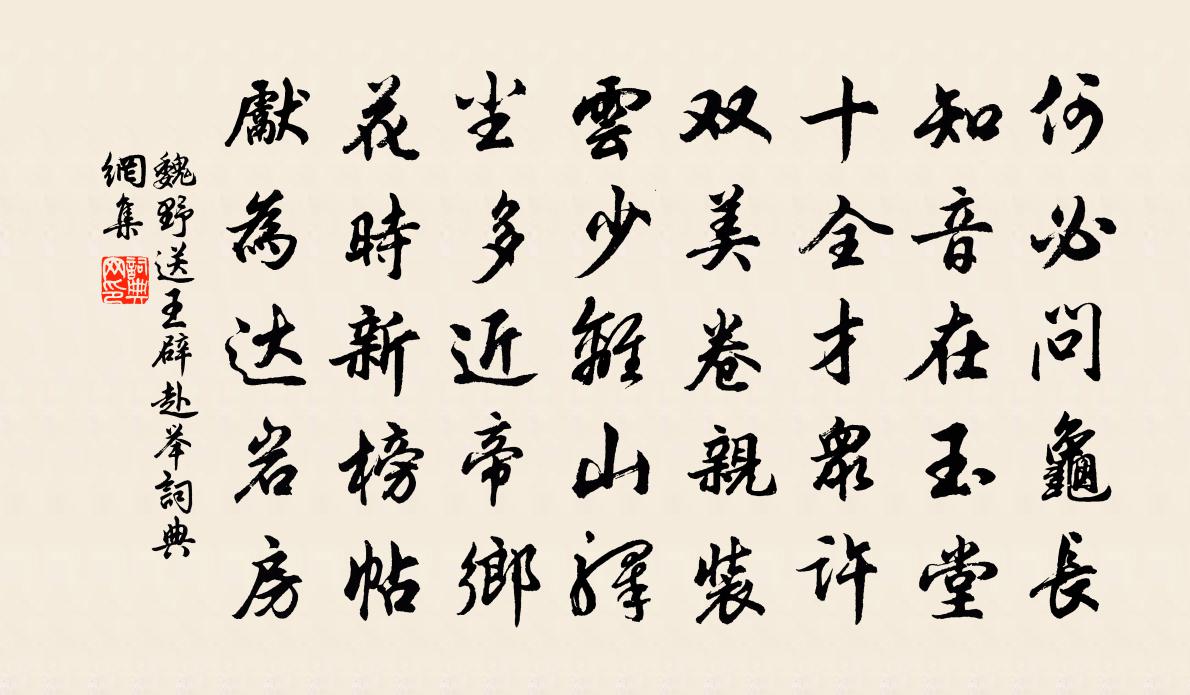 何必問龜長
知音在玉堂
十全才眾許
双美卷親裝
雲少離山驛
尘多近帝鄉
花時新榜帖
獻為达岩房
魏野送王辟赴举詞典
網集
詞典
网印